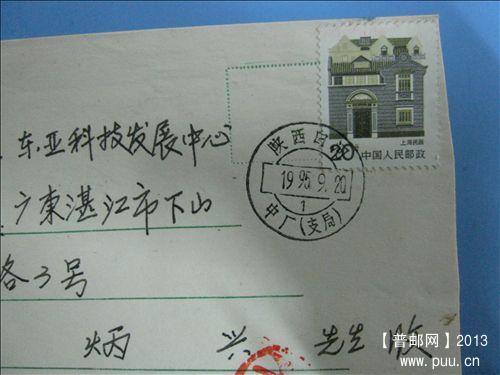 上海民居
20
中国人民邮政
陕西
1995.9.20
1
中厂(支局)
东亚科技发展中心
广东湛江市下山
路3号
炳 兴 先生 收
【普邮网】2013
www.puu.cn